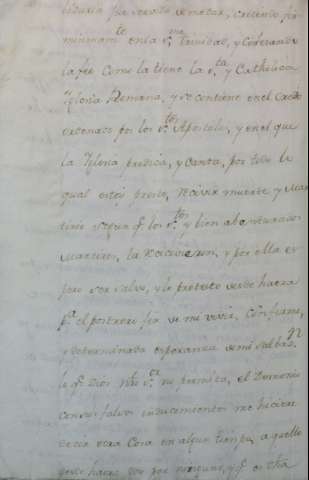 nimam.te en la s.ma Trinidad, y Confesando
la fee como la tiene la s.ta y Catholica
Iglesia Romana, y se contiene en el Credo
ordenado por los s.tos Apostoles, y en el que
la Iglesia predica, y Canta, por todo lo
qual estoy presto, Recivir muerte y Mar
tirio segun q.e los s.tos y bien abenturados
Martires, la Recivieron, y por ella es
pero ser salvo, y lo protesto desde haora
p.a el postrero dia de mi vivir, Con firme,
y determinada esperanza de mi salbaz.n
lo q.e Dios n̄ro s.r no permita, el Demonio
con sus falsos inducimientos me hiciere
decir otra Cosa en algun tiempo, a quello
desde haora doy por ninguno, y q.e